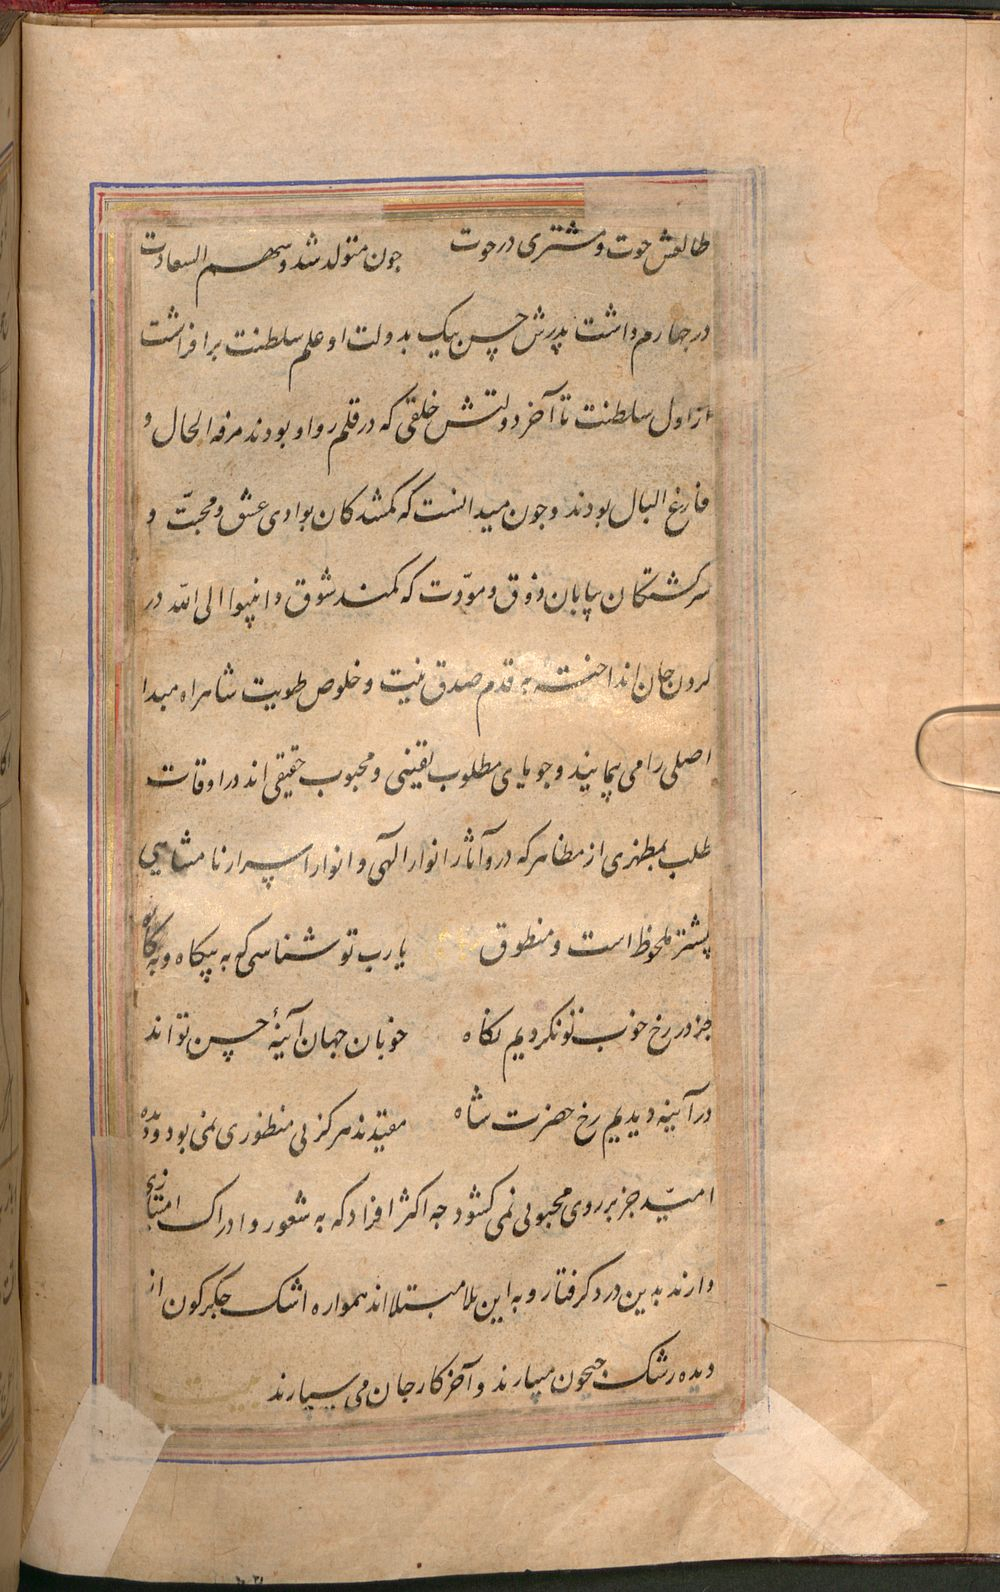 طالعش حوت و مشتری در حوت جون متولد شد و سهم السعادت
در چهارم داشت پدرش حسن بیک بدولت او علم سلطنت برافراشت
از اول سلطنت تا آخر دولتش خلقی که در قلم رو او بودند مرفه الحال و
فارغ البال بودند و جون میدانست که کمشدکان بوادی عشق و محبّت و
سرکشتکان بیابان ذوق و مودّت که کمند شوق و انیبوا الی الله در
کردن جان انداخته به قدم صدق نیت و خلوص طویت شاهراه مبدا
اصلی را می پیمایند و جویای مطلوب یقینی و محبوب حقیقی اند در اوقات
طلب بمظهری از مظاهر که درو آثار انوار الهی و انوار اسرار نامتناهی
پیشتر ملحوظ است و منظوق یا رب تو شناسی که به بیکاه و بکاه
جز در رخ خوب تو نکردیم نکاه خوبان جهان آینهٔ حسن تو اند
در آینه دیدیم رخ حضرت شاه مقیّدند هرکز بی منظوری نمی بود و دیدهٔ
امیّد جز بر روی محبوبی نمی کشود جه اکثر افراد که به شعور و ادراک امتیازی
دارند بدین درد کرفتار و به این بلا مبتلا اند همواره اشک جکرکون از
دیده رشک جیحون میبارند و آخر کار جان می سپارند